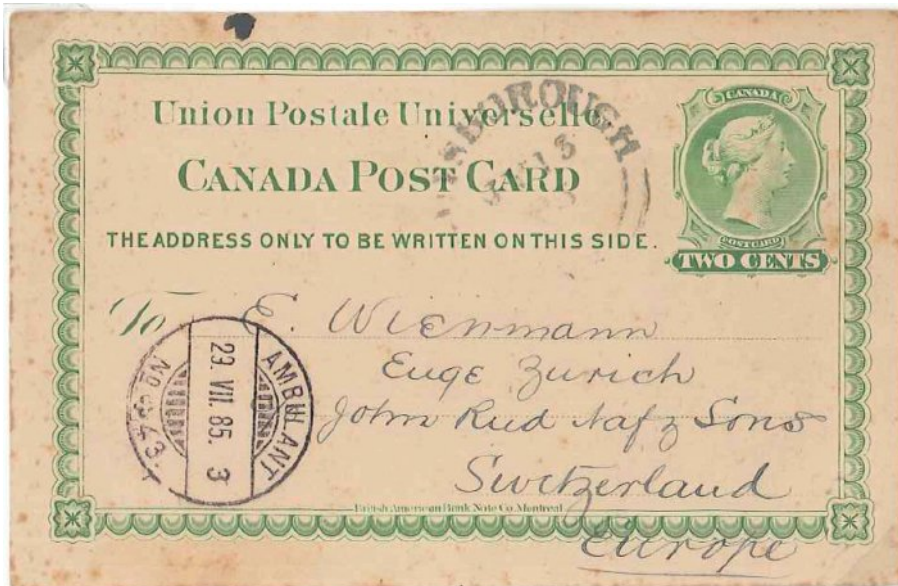 Union Postale Universelle.
CANADA POST CARD
THE ADDRESS ONLY TO BE WRITTEN ON THIS SIDE.
CANADA
POST CARD
TWO CENTS
To E. Wienmann
Euge Zurich
John Rud Naf z Sons
Switzerland
Europe
AMBULANT
29. VII. 85. 3
No
British American Bank Note Co. Montreal